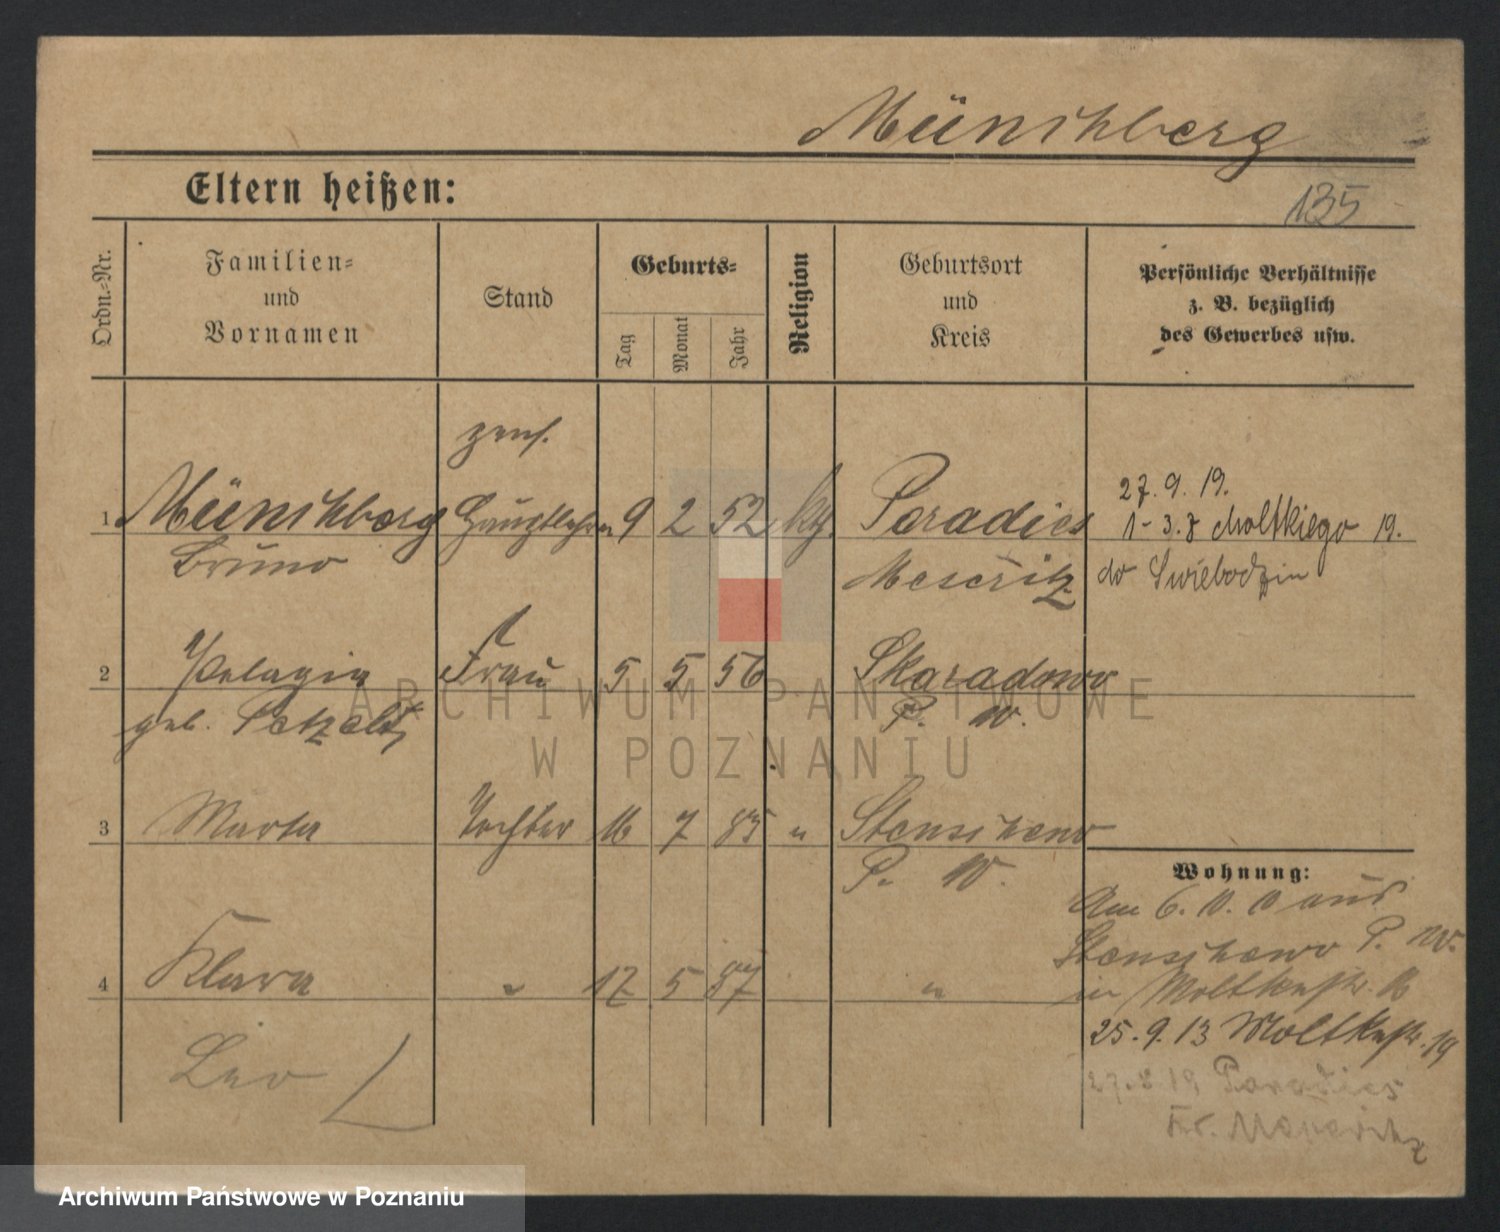 Münchberg
Eltern heißen:
135
Ordn.-Nr.
Familien-
und
Vornamen
Stand
Geburts-
Tag
Monat
Jahr
Religion
Geburtsort
und
Kreis
Persönliche Verhältnisse
z. B. bezüglich
des Gewerbes usw.
pens.
1 Münchberg Hauptlehrer 9 2 52 kth. Paradies
Bruno Meseritz
27. 9. 19.
1 - 3. Moltkiego 19.
do Swiebodzin
2 Pelagia Frau 5 5 56 Skaradowo
geb. Petzelt P. W.
3 Marta Tochter 16 7 85 " Stenschewo
P. W.
4 Klara " 12 5 87 "
Leo
Wohnung:
Am 6. 10. 10 aus
Stenschewo P. W.
in Moltkestr. 16
25. 9. 13 Moltkestr. 19
19 Paradies
Kr. Meseritz
ARCHIWUM PAŃSTWOWE
W POZNANIU
Archiwum Państwowe w Poznaniu